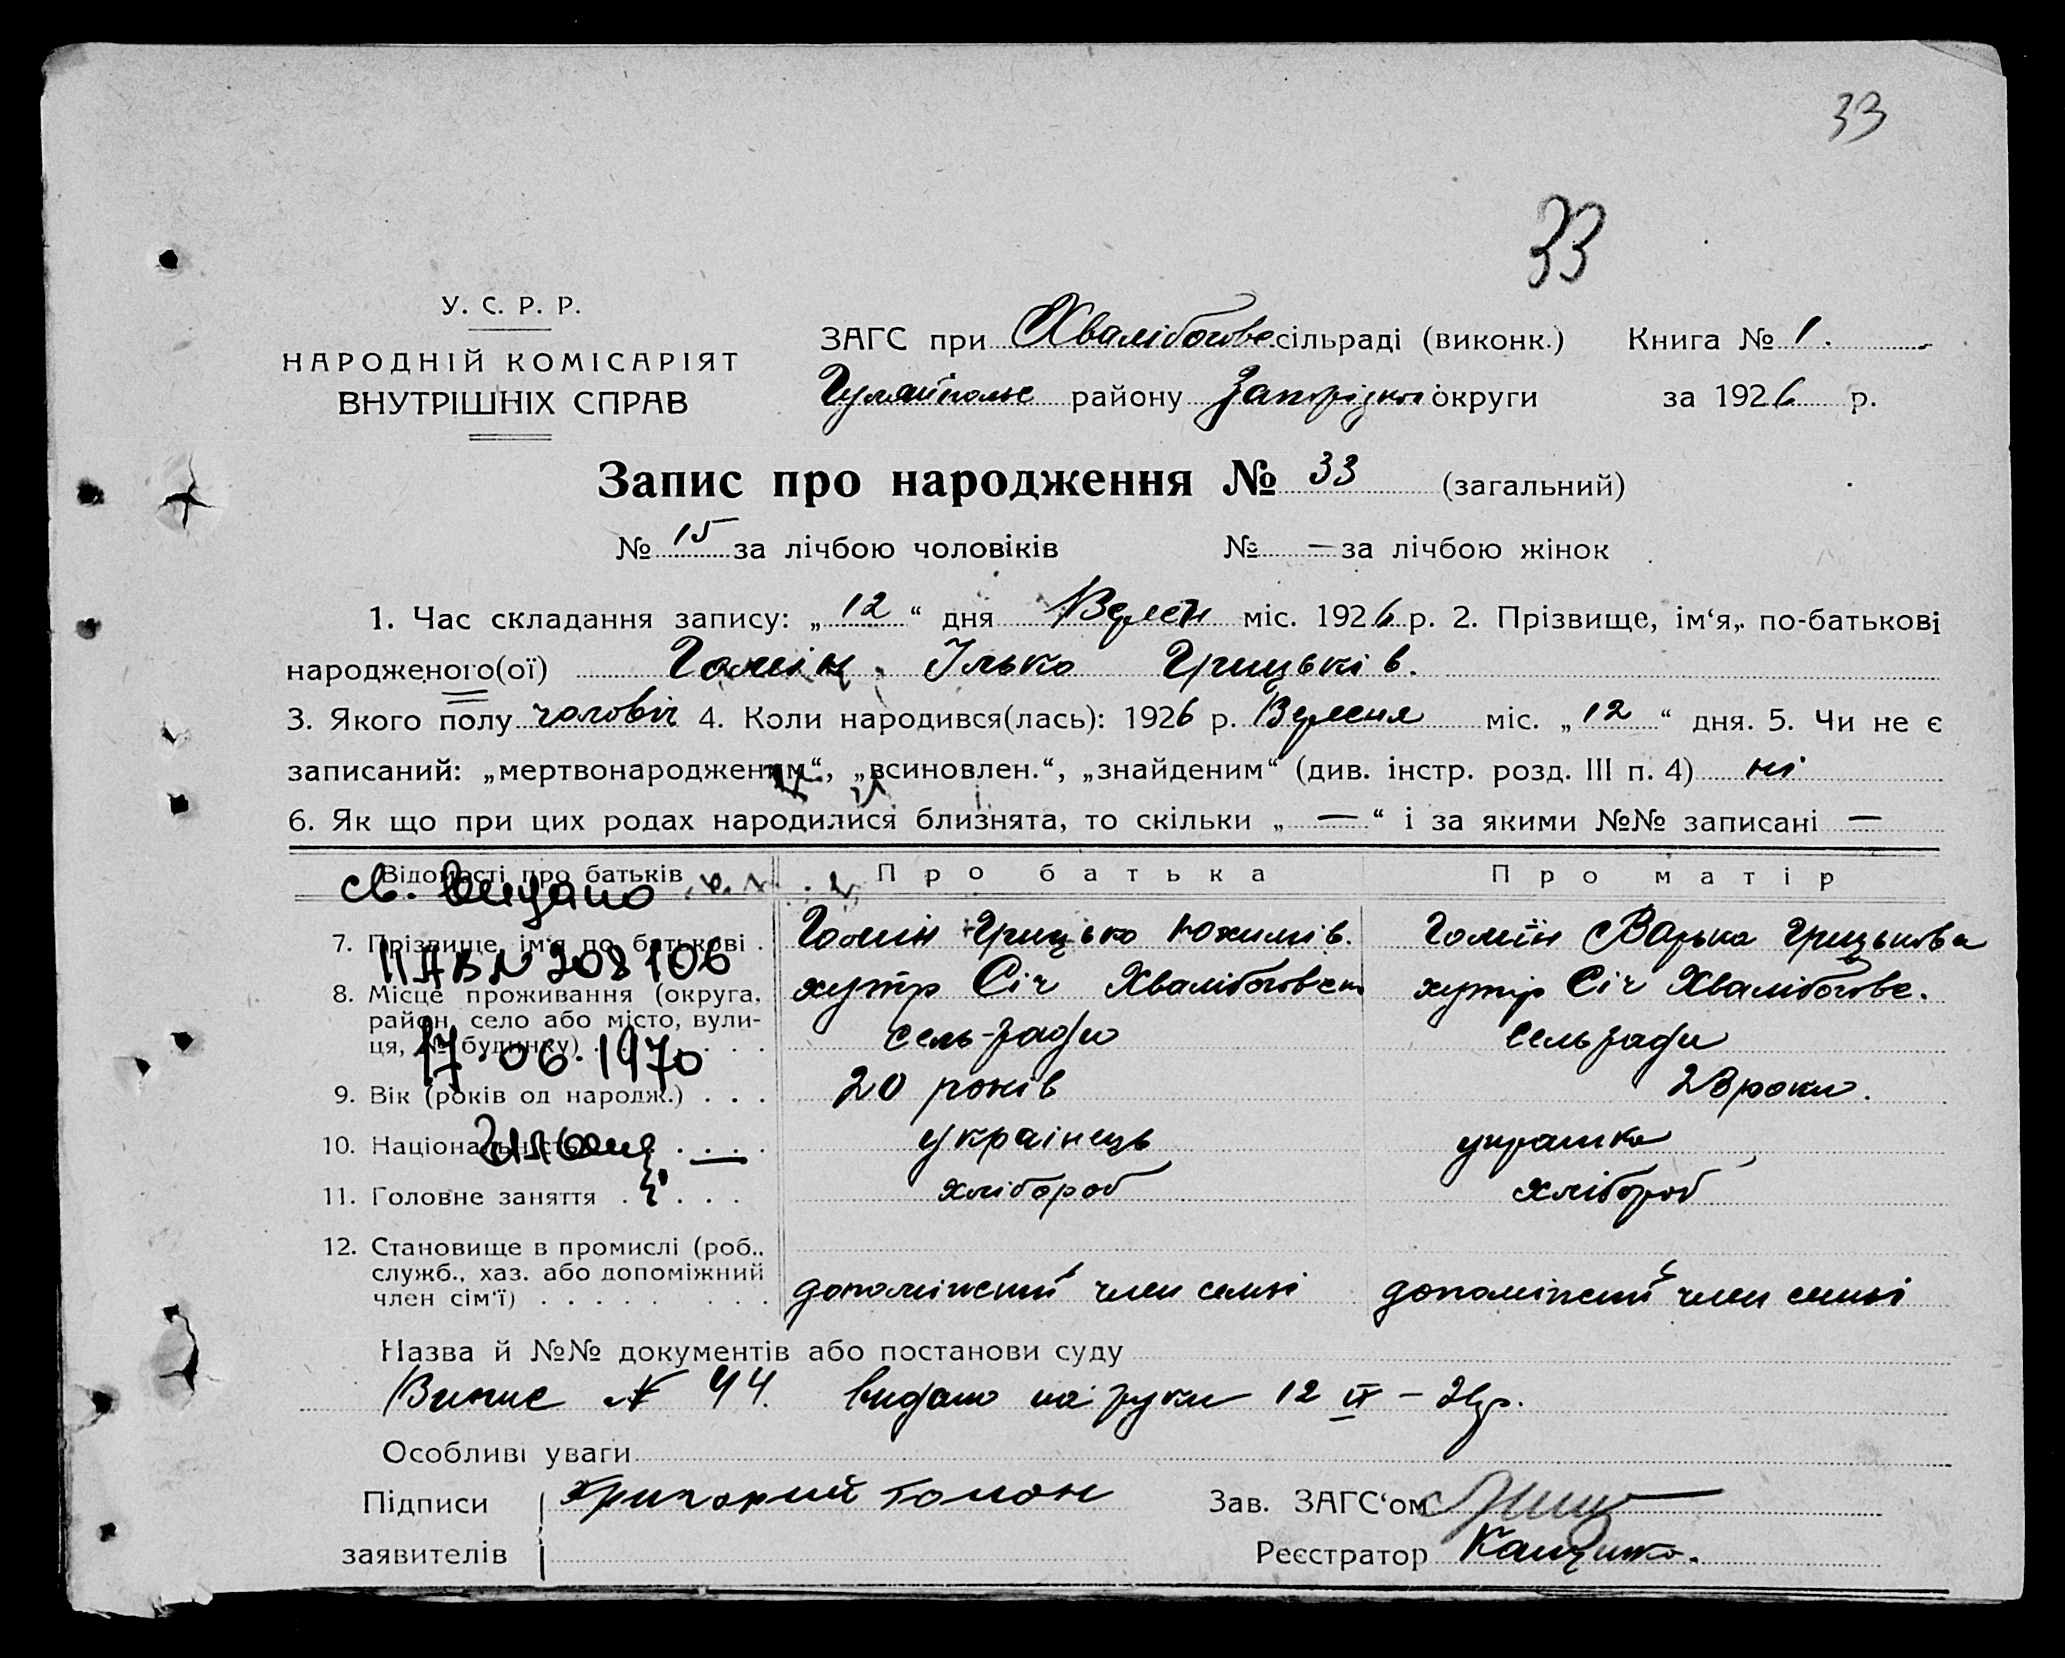 33
33
У. С. Р. Р.
НАРОДНІЙ КОМІСАРІЯТ
ВНУТРІШНІХ СПРАВ
ЗАГС при Хвалібогове сільраді (виконк.) Книга № 1.
Гуляйполье району Запорізької округи за 1926 р.
Запис про народження № 33 (загальний)
№ 15 за лічбою чоловіків № — за лічбою жінок
1. Час складання запису: „12“ дня Вересн міс. 1926 р. 2. Прізвище, ім‘я, по-батькові
народженого(ої) Гомін Ілько Грицьків.
3. Якого полу чоловіч 4. Коли народився(лась): 1926 р. Вересня міс. „12“ дня. 5. Чи не є
записаний: „мертвонародженим“, „всиновлен.“, „знайденим“ (див. інстр. розд. III п. 4) ні
6. Як що при цих родах народилися близнята, то скільки „—“ і за якими №№ записані —
Відомості про батьків Про батька Про матір
св. видано
7. Прізвище, ім‘я по батькові . Гомін Грицько Юхимів. Гомін Варька Грицькова
II АВ № 208106
8. Місце проживання (округа, хутір Січ Хвалібоговск хутір Січ Хвалібогове.
район, село або місто, вули-
ця, № будинку) . . . . сель-ради сельради
17.06.1970
9. Вік (років од народж.) . . . 20 років 23 роки.
10. Національність . . . . українець українка
11. Головне заняття . . . . хлібороб хлібороб
12. Становище в промислі (роб.,
служб., хаз. або допоміжний
член сім‘ї) . . . . . . . допоміжний член семьі допоміжний член семьі
Назва й №№ документів або постанови суду
Випис № 44. видано на руки 12 IX – 26р.
Особливі уваги
Підписи Григорий Гомон Зав. ЗАГС‘ом
заявителів Реєстратор